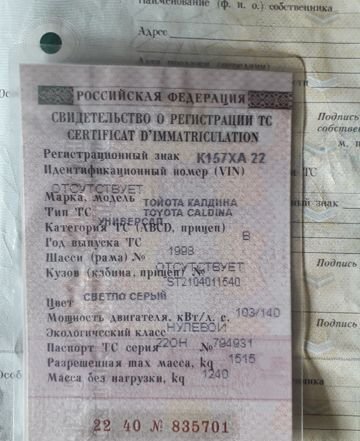 Наименование (ф. и. о.) собственника
Адрес
РОССИЙСКАЯ ФЕДЕРАЦИЯ
СВИДЕТЕЛЬСТВО О РЕГИСТРАЦИИ ТС
CERTIFICAT D'IMMATRICULATION
Регистрационный знак К157ХА 22
Идентификационный номер (VIN)
ОТСУТСТВУЕТ
Марка, модель ТОЙОТА КАЛДИНА
Тип ТС TOYOTA CALDINA
УНИВЕРСАЛ
Категория ТС (ABCD, прицеп) B
Год выпуска ТС 1998
Шасси (рама) № ОТСУТСТВУЕТ
Кузов (кабина, прицеп) № ST2104011540
Цвет СВЕТЛО СЕРЫЙ
Мощность двигателя, кВт/л. с. 103/140
Экологический класс НУЛЕВОЙ
Паспорт ТС серия 22ОН № 794931
Разрешенная max масса, kg 1515
Масса без нагрузки, kg 1240
22 40 № 835701
Подпись
собстве
м. п.
ный знак
Подпись
Подпись